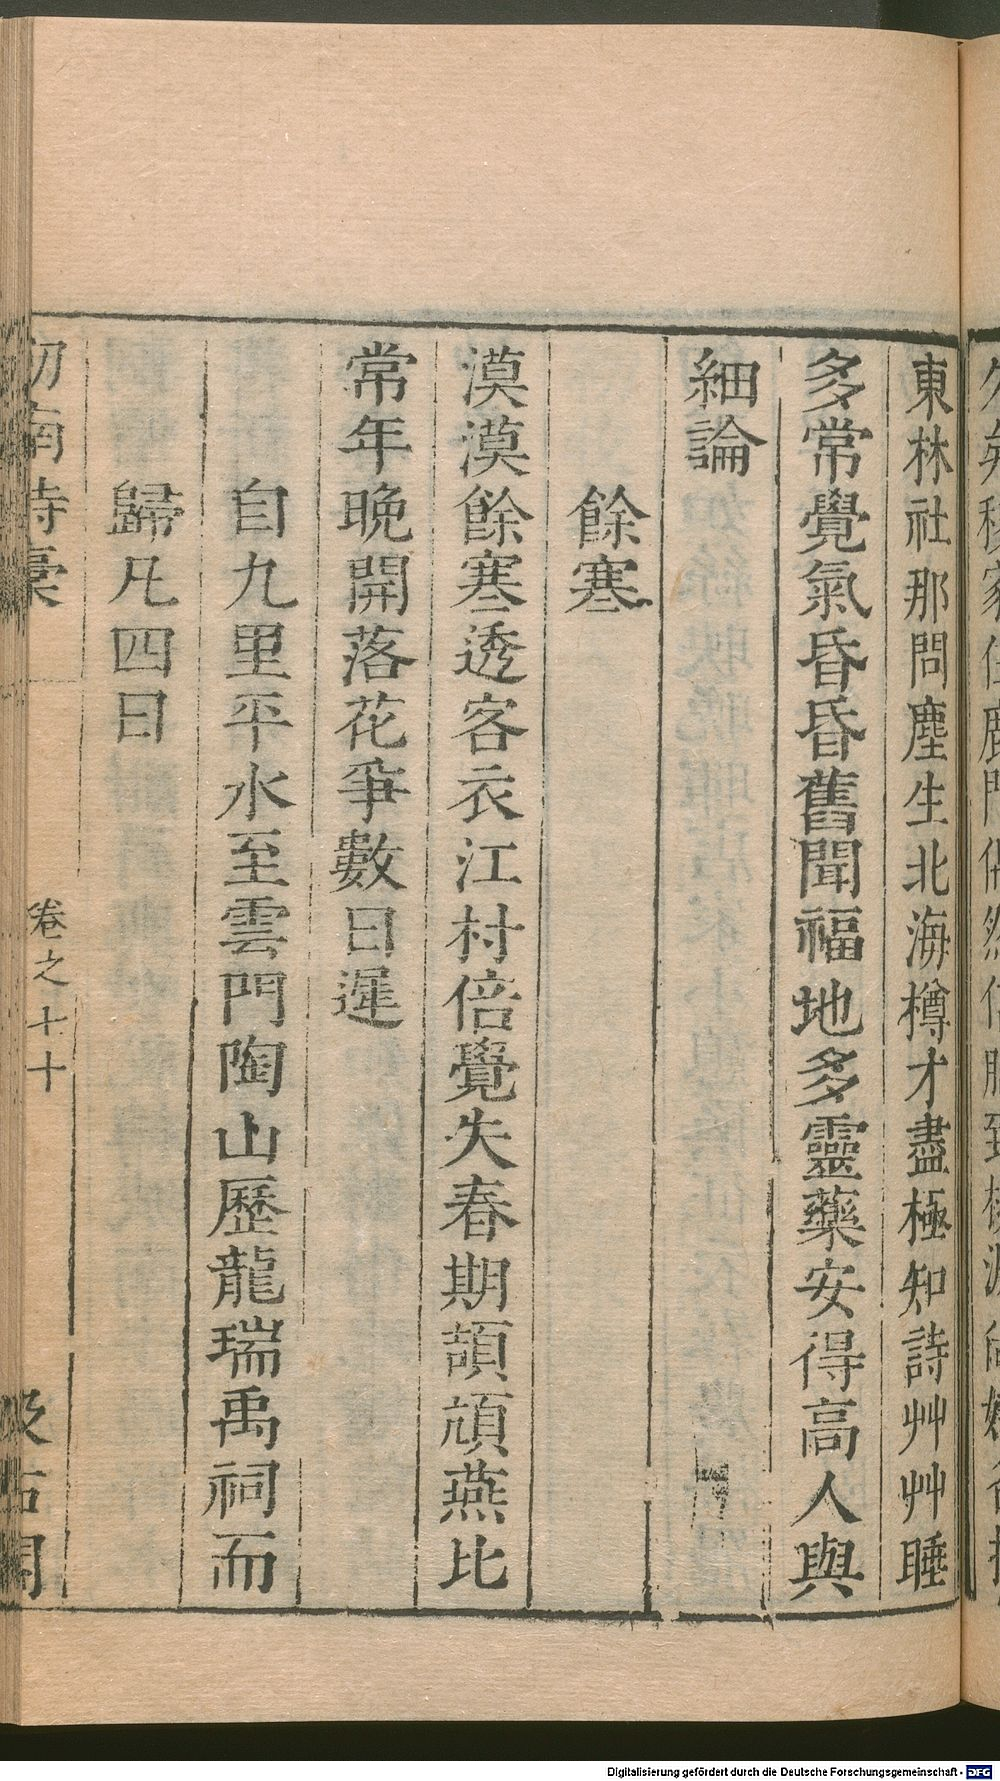 東林社那問塵生北海樽才盡極知詩艸艸睡
多常覺氣昏昏舊聞福地多靈藥安得高人與
細論
餘寒
漠漠餘寒透客衣江村倍覺失春期頡頏燕比
常年晚開落花爭數日遲
自九里平水至雲門陶山歷龍瑞禹祠而
歸凡四日
劒南詩稾
卷之十七
十
汲古閣
Digitalisierung gefördert durch die Deutsche Forschungsgemeinschaft - DFG